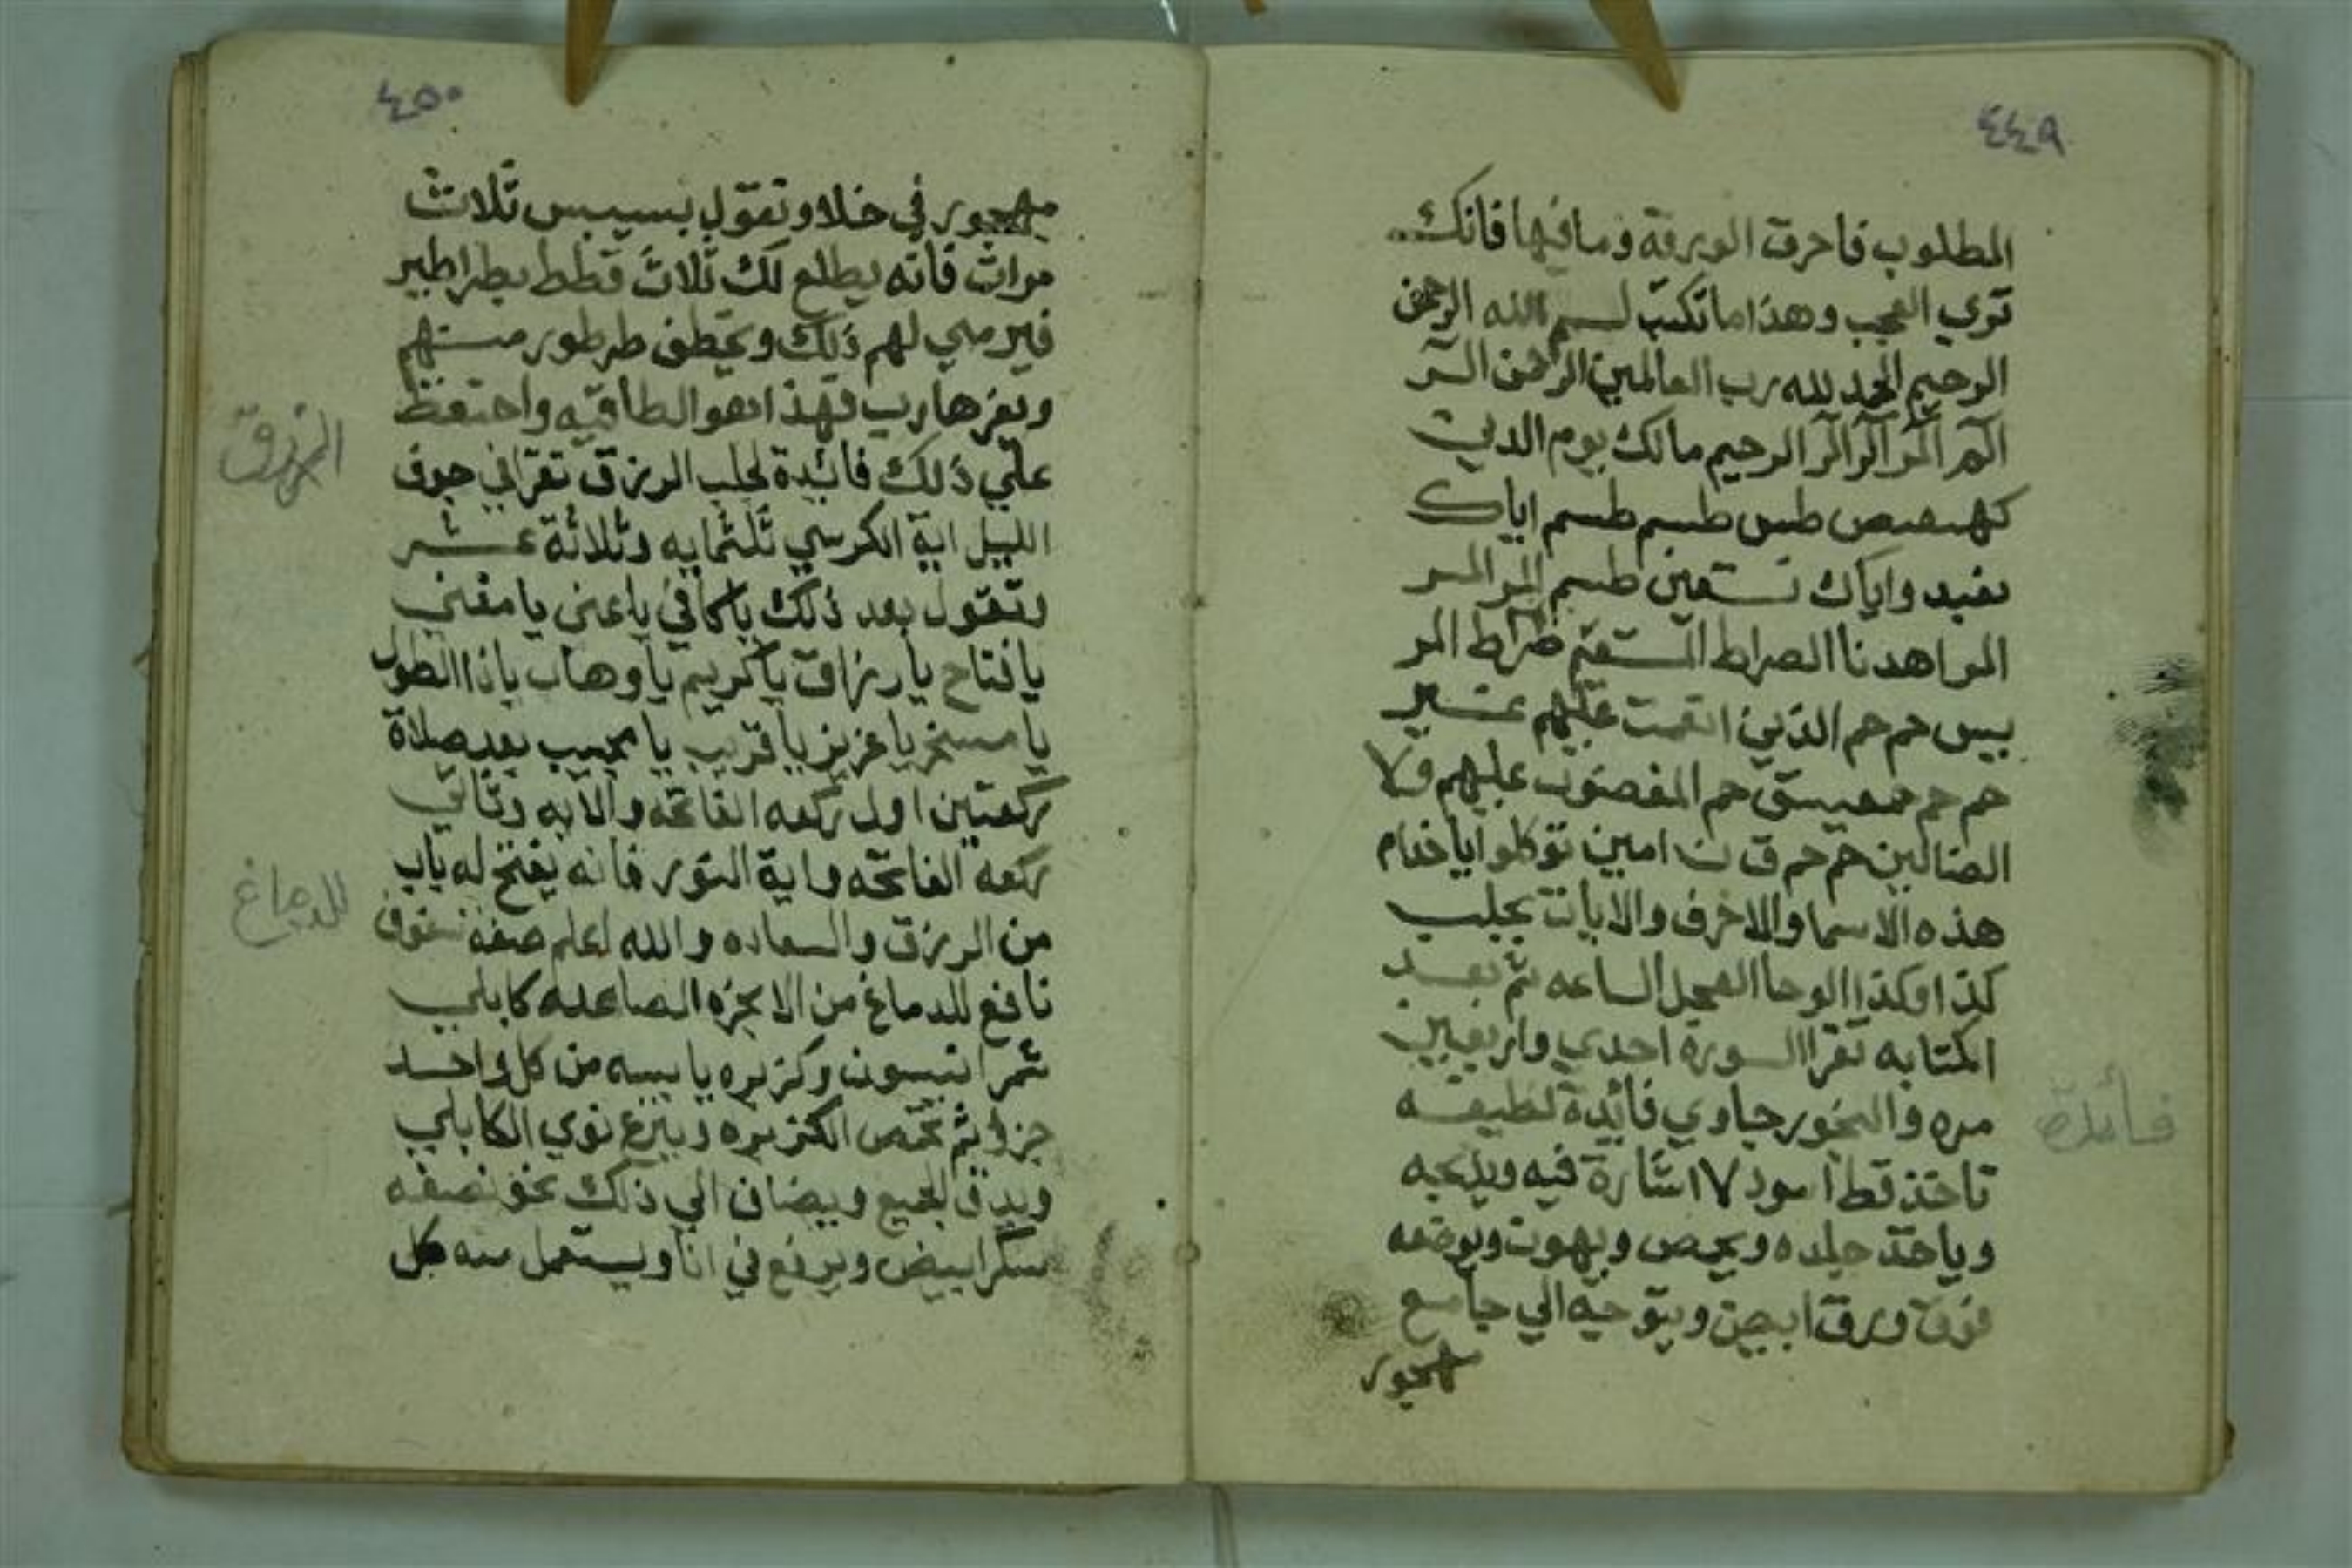 ٤٤٩
المطلوب فاحرق الورقة وما فيها فانك
تري العجب وهذا ما تكتب بسم الله الرحمن
الرحيم الحمد لله رب العالمين الرحمن الـر
الم المر الر الر الرحيم مالك يوم الدين
كهيعص طس طسم طسم اياك
نعبد واياك نستعين طسم المر المر
المر اهدنا الصراط المستقيم صراط المر
يس حم حم الذين انعمت عليهم غير
حم حم حمعيسق حم المغضوب عليهم ولا
الضالين حم حم ق ن امين توكلوا يا خدام
هذه الاسما والاحرف والايات بجلب
كذا وكذا الوحا العجل الساعه ثم بعد
الكتابه تقرا السورة احدي واربعين
مره والبخور جاوي فائدة لطيفه
تاخذ قط اسود ١٧ شارة فيه ويذبحه
وياخذ جلده ويحمص ويهوت ويوضعه
فوق ورق ابيض ويتوجه الي جامع
مهجور
فائدة
٤٥٠
مهجور في خلا وتقول بسيبس ثلاث
مرات فانه يطلع لك ثلاث قطط بطراطير
فيرمي لهم ذلك ويخطف طرطور منهم
ويفر هارب فهذا هو الطاقيه واحتفظ
علي ذلك فائدة لجلب الرزق تقرا في جوف
الليل اية الكرسي ثلثمايه وثلاثة عشر
وتقول بعد ذلك يا كافي يا غني يا مغني
يا فتاح يا رزاق يا كريم يا وهاب يا ذا الطول
يا مسخر يا عزيز يا قريب يا مجيب بعد صلاة
ركعتين اول ركعه الفاتحه والايه وثاني
ركعه الفاتحه واية النور فانه يفتح له باب
من الرزق والسعاده والله اعلم صفة سفوف
نافع للدماغ من الابخره الصاعده كابلي
شمر انيسون وكزبره يابسه من كل واحد
جزو ثم تحمص الكزبره وينزع نوي الكابلي
ويدق الجميع ويضاف الي ذلك نحو نصفه
سكر ابيض ويرفع في انا ويستعمل منه كل
الرزق
للدماغ